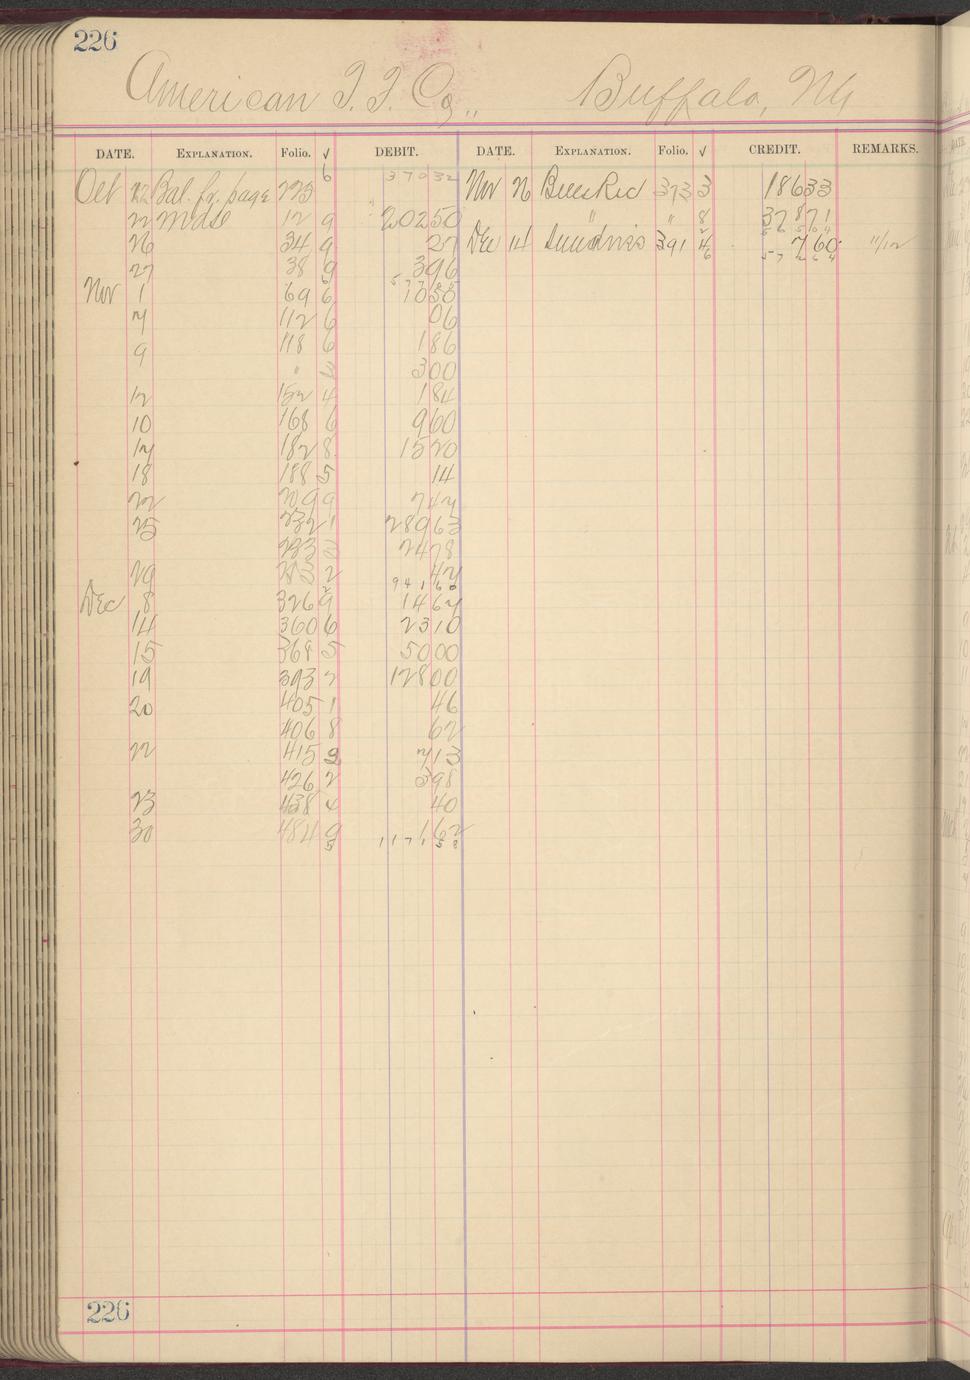 226
American T. T. Co., Buffalo, NY
DATE. EXPLANATION. Folio. √ DEBIT. DATE. EXPLANATION. Folio. √ CREDIT. REMARKS.
6
Oct 22 Bal. fr. page 225 370 32 Nov 26 Bills Rec 373 3 186 33
22 Mdse 12 9 202 50 " " 8 328 71
26 34 9 27 Dec 14 Sundries 391 4 7 60 11/12
27 38 9 3 96
577 05 6 522 64
Nov 1 69 6 10 58
7 112 6 06
9 118 6 1 86
" 3 00
12 152 4 1 84
10 168 6 9 60
17 182 8 15 20
18 188 5 14
22 209 9 7 47
25 232 1 289 63
233 24 78
29 283 2 47
941 60
Dec 8 326 9 14 67
14 360 6 23 10
15 368 5 50 00
19 393 2 128 00
20 405 1 46
406 8 62
22 415 3 7 13
426 2 3 98
23 438 4 40
30 484 9 1 62
5 1171 58
226